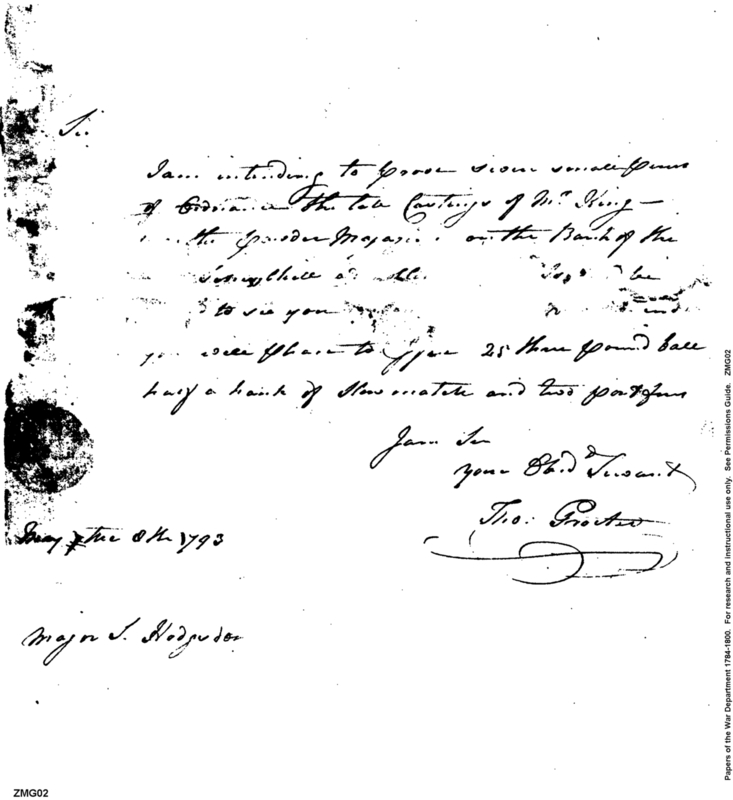 Sir
I am intending to prove seven small peices
of Ordnance the late Castings of Mr. King —
the powder Magazine on the Bank of the
be
to see you
you will please to 25 three pound ball
half a hank of Slow match and two portfires
I am Sir
your Obed Servant
Tho: Procter
May the 8th 1793
Major S. Hodgsdon
Papers of the War Department 1784-1800. For research and instructional use only. See Permissions Guide. ZMG02
ZMG02